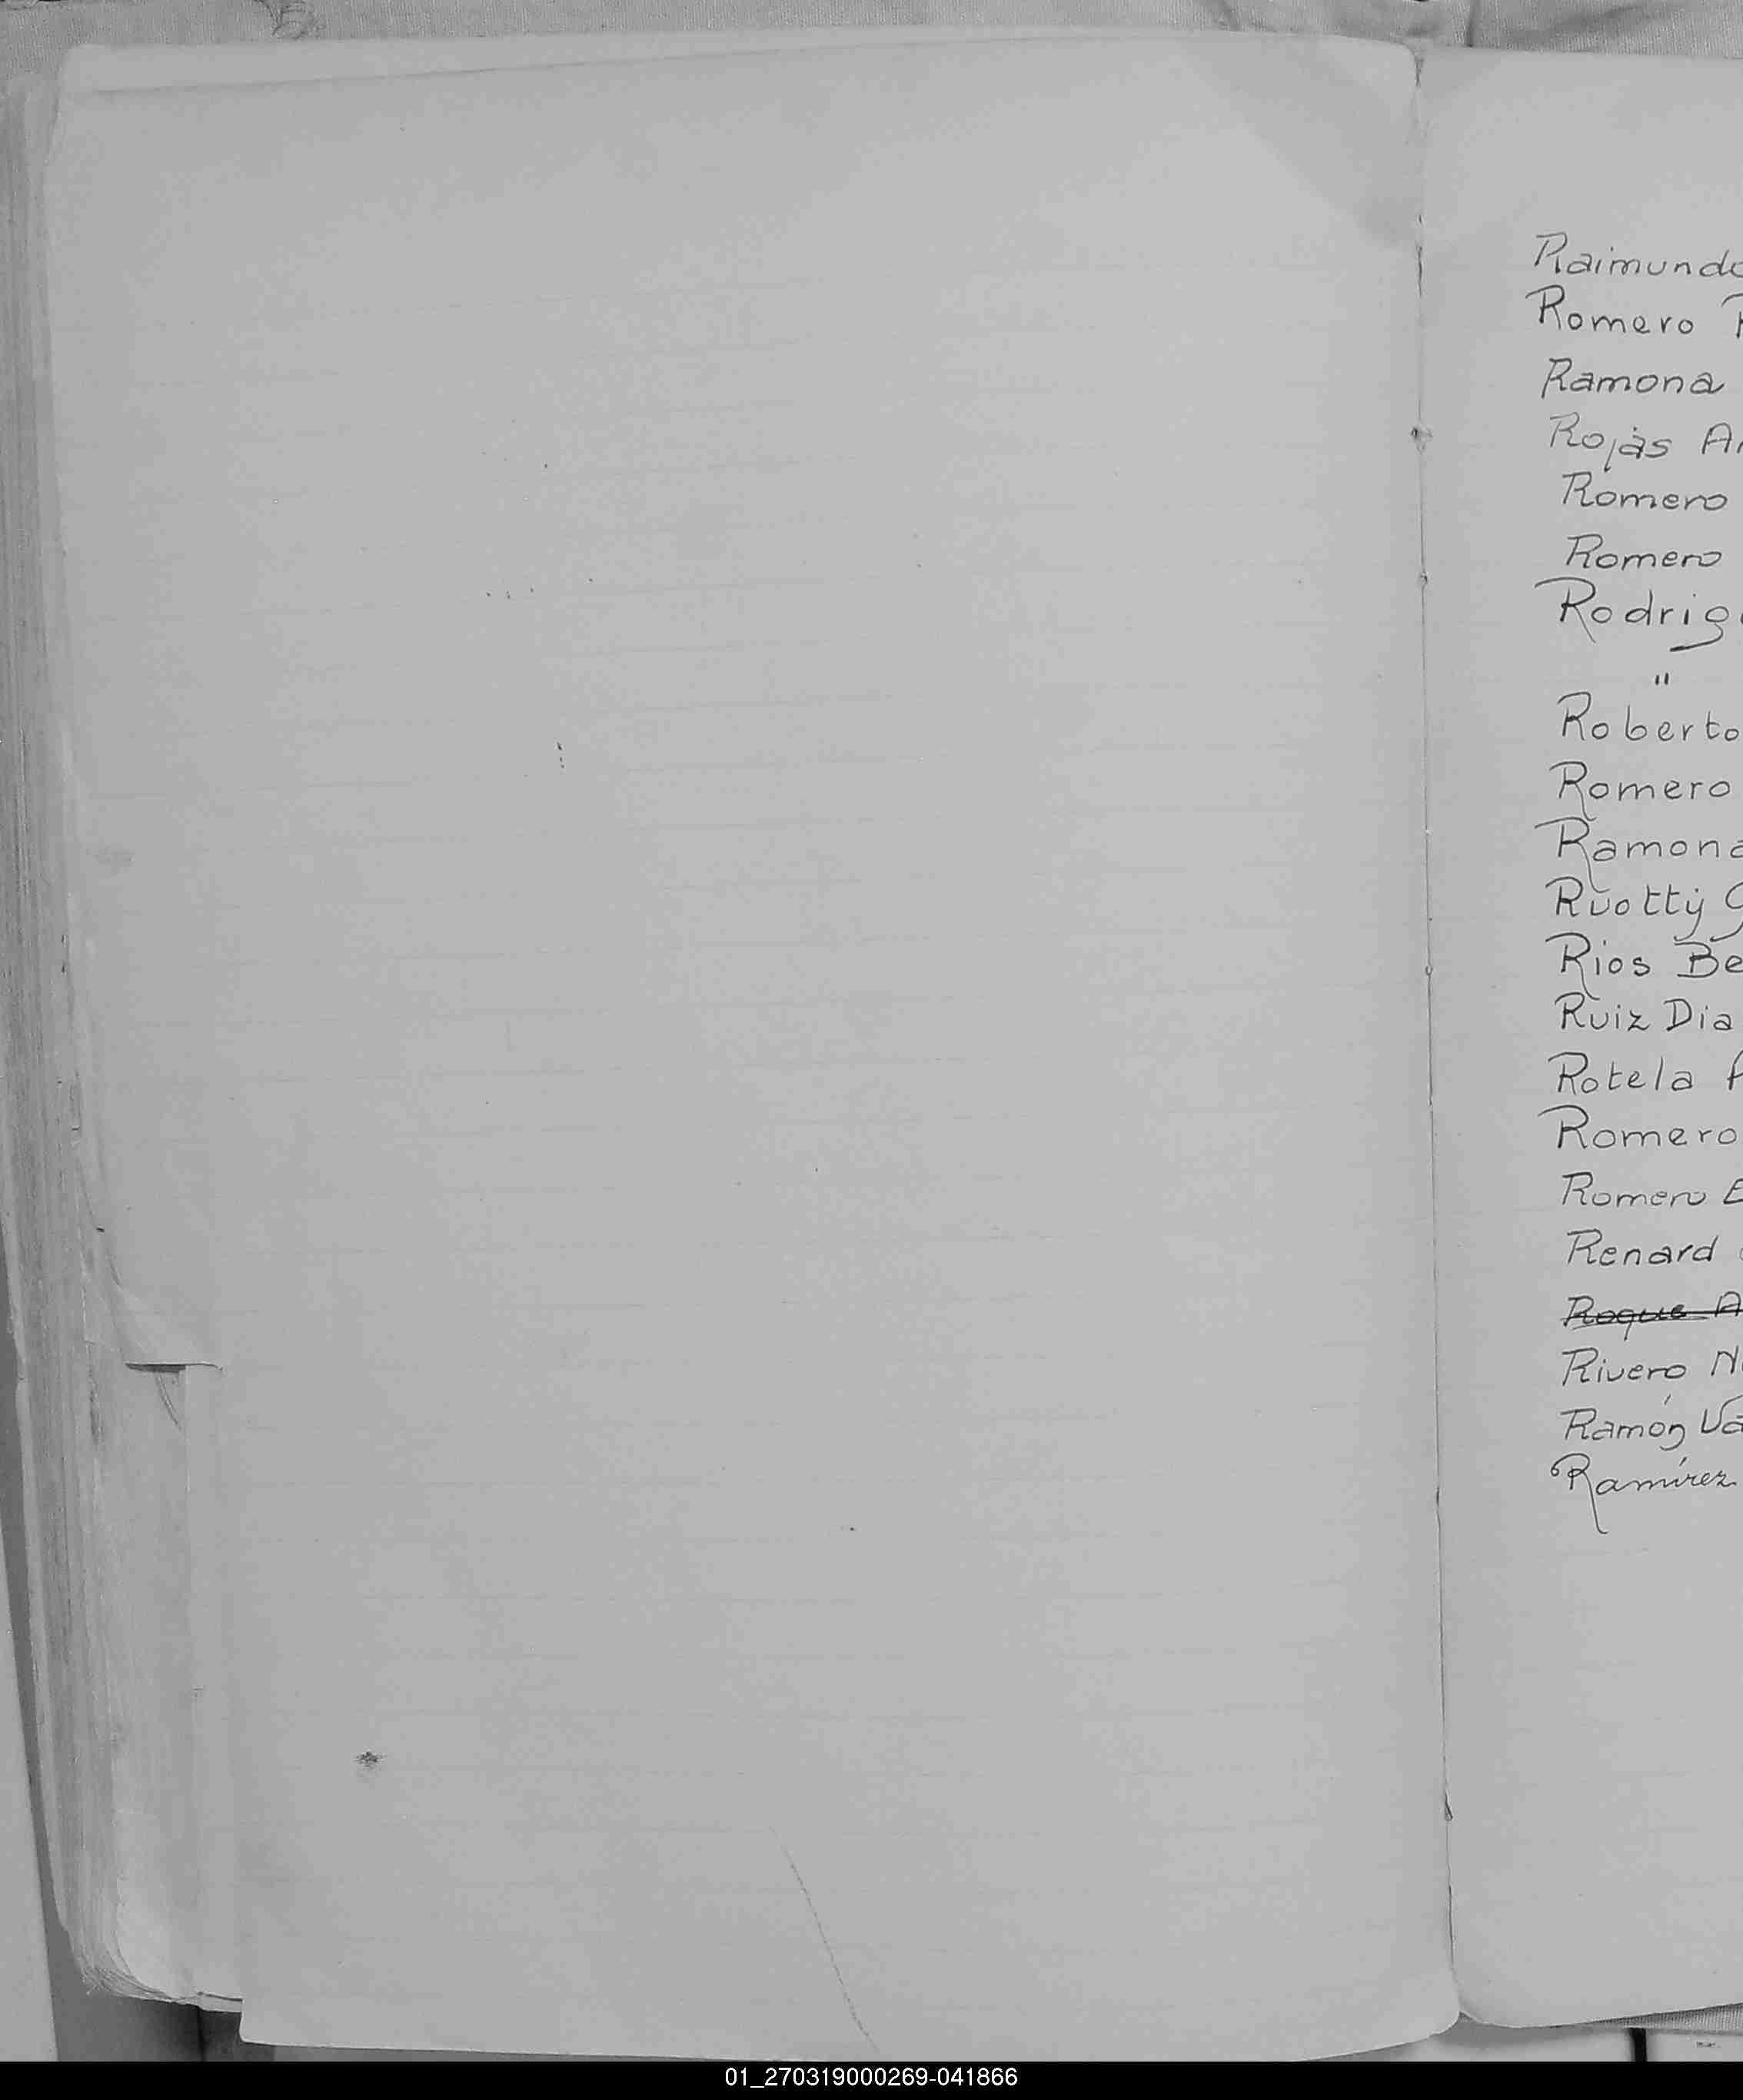 Raimundo
Romero
Ramona
Rojas
Romero
Romero
Rodrig
"
Roberto
Romero
Ramona
Ruotty
Rios Be
Ruiz Dia
Rotela
Romero
Romero E
Renard
Roque A
Rivero N
Ramón Va
Ramírez
01_270319000269-041866